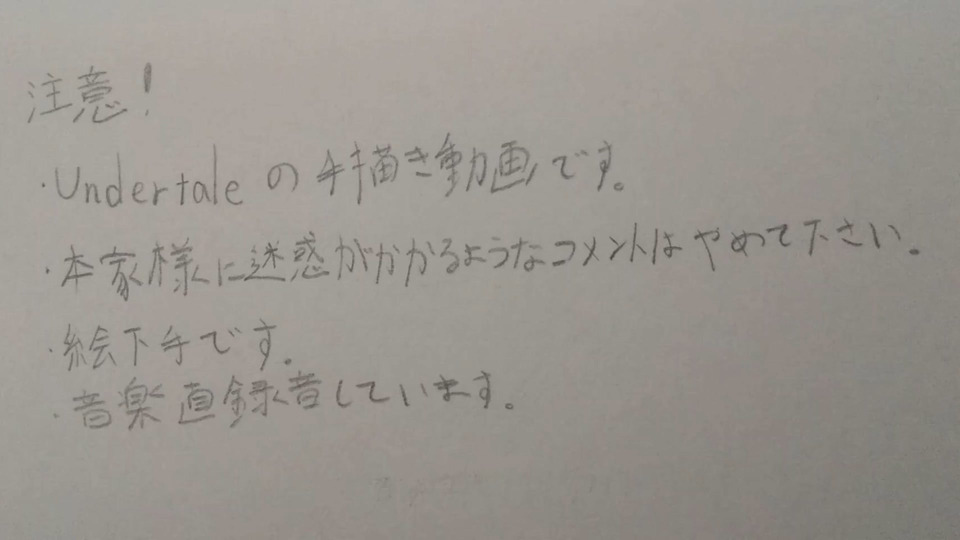 注意!
・Undertaleの手描き動画です。
・本家様に迷惑がかかるようなコメントはやめて下さい。
・絵下手です。
・音楽直録音しています。